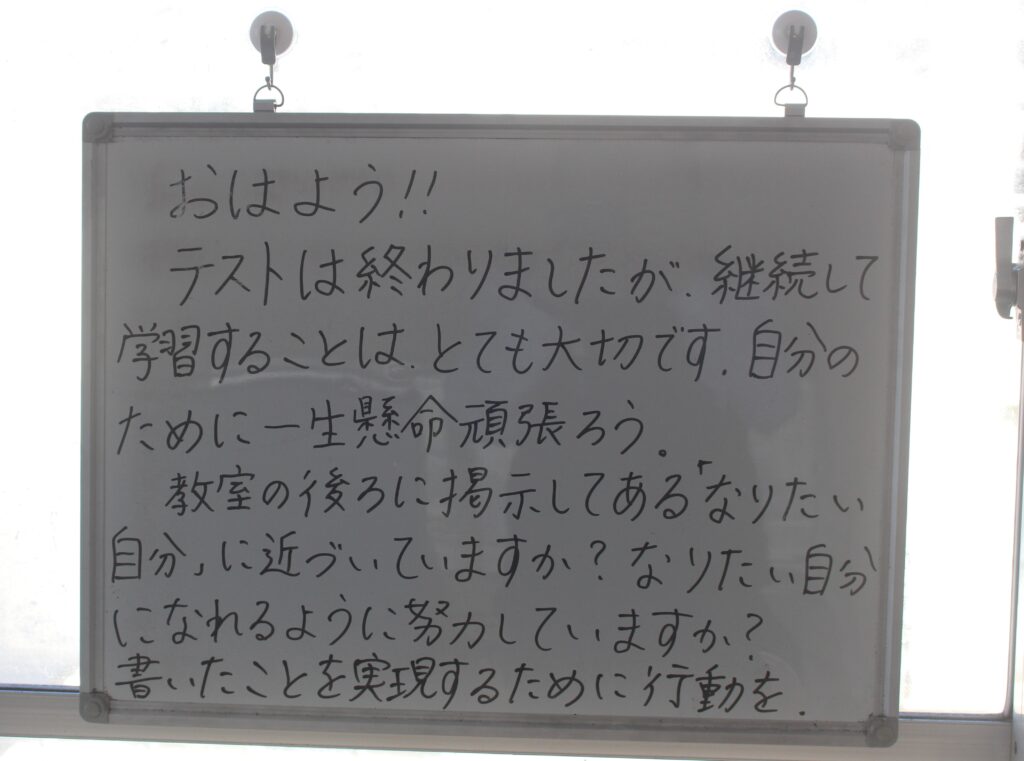 おはよう!!
テストは終わりましたが、継続して
学習することは、とても大切です。自分の
ために一生懸命頑張ろう。
教室の後ろに掲示してある「なりたい
自分」に近づいていますか?なりたい自分
になれるように努力していますか?
書いたことを実現するために行動を。